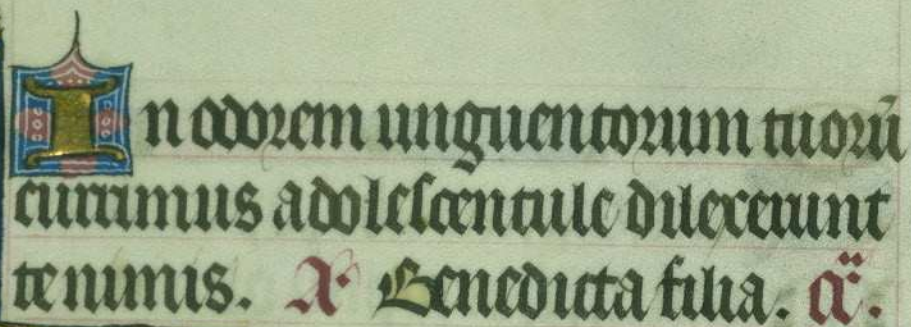 In odorem unguentorum tuorū
currimus adolescentule dilexerunt
te nimis. A· Benedicta filia. a̎.